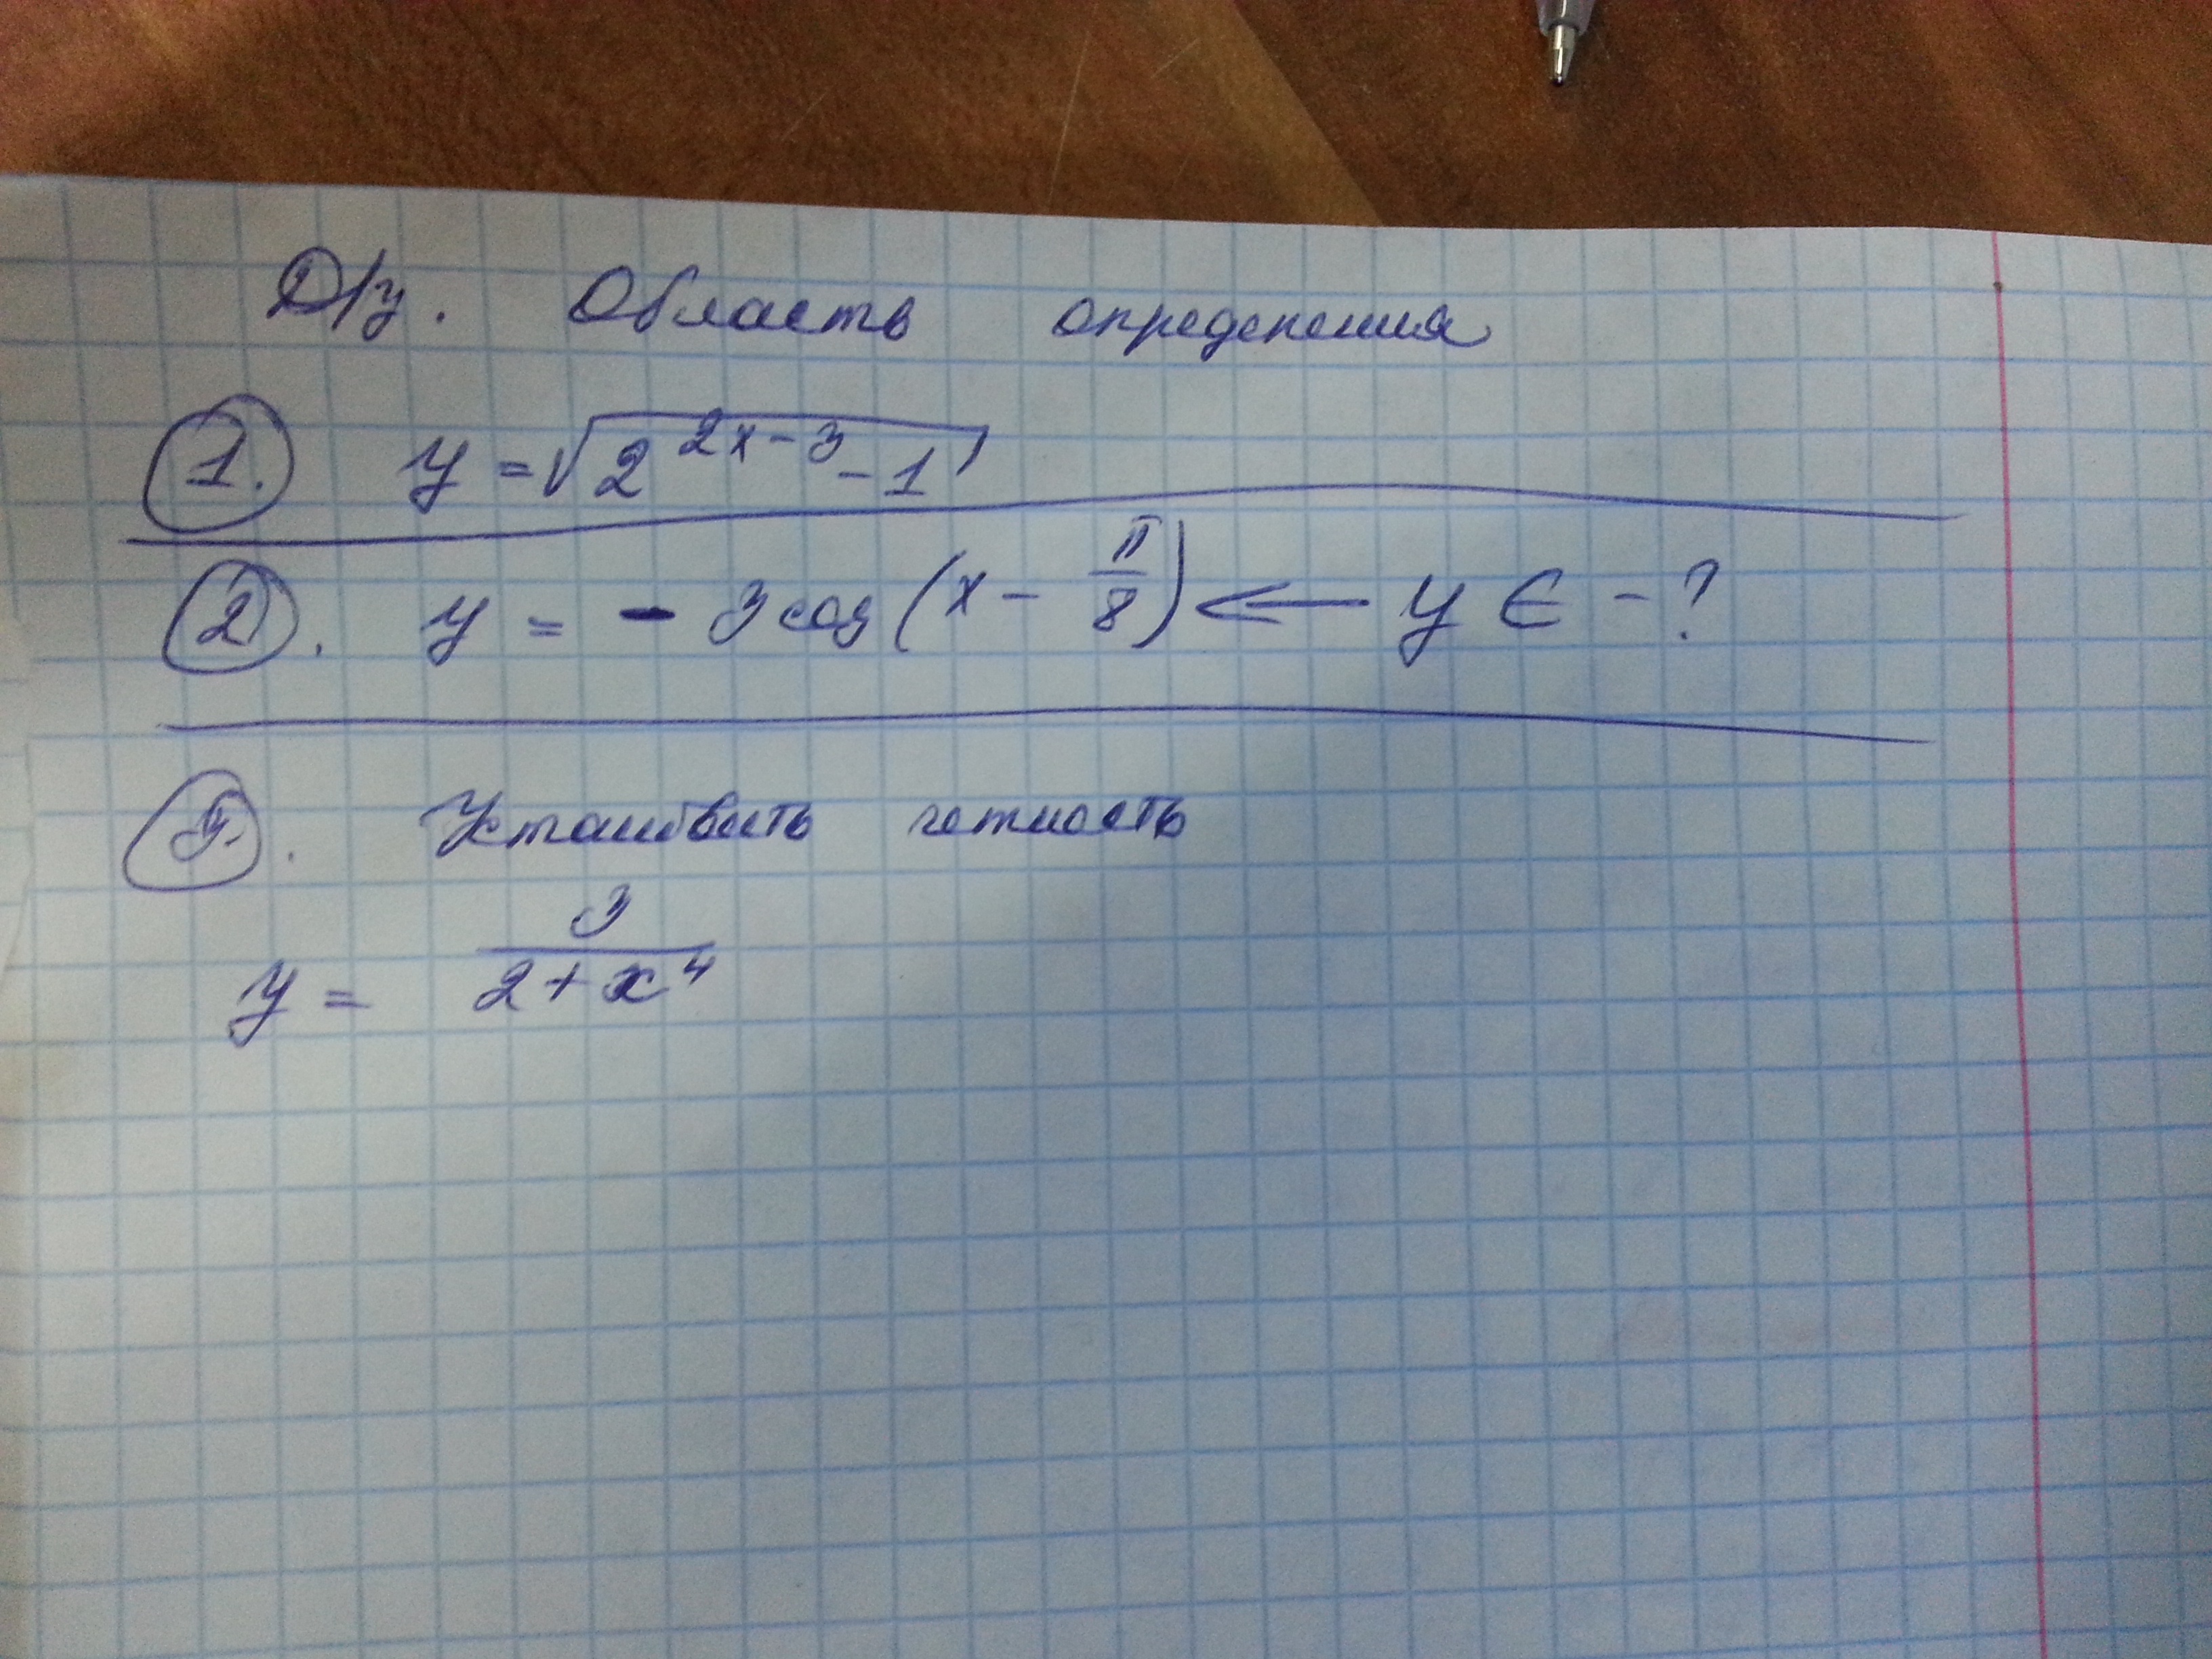 Д/у. Область определения
1. y = √(2^(2x-3) - 1)
2. y = - 3 cos (x - π/8) ← y ∈ - ?
Установить четность
y = 3/(2 + x^4)